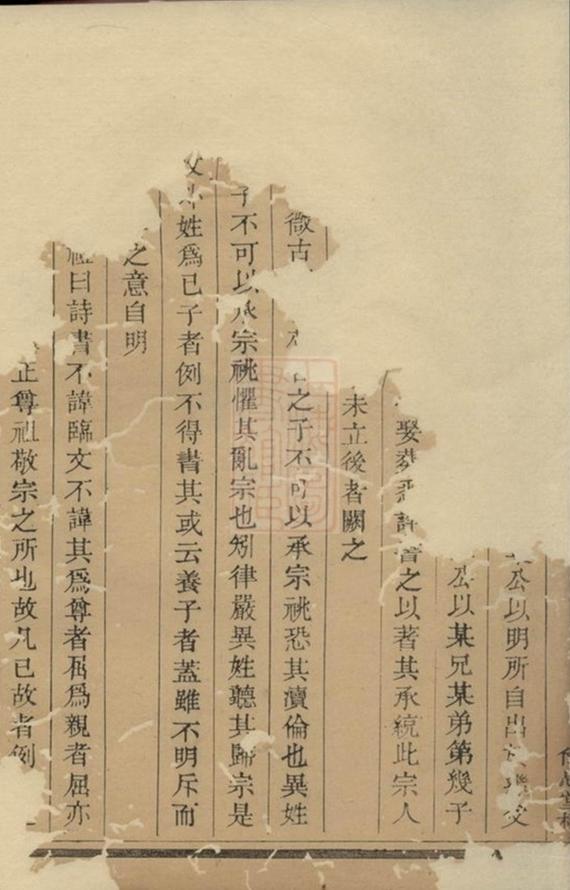 公以明所自出
公以某兄某弟第幾子
娶葬書之以著其承統此宗人
未立後者闕之
微古之子不可以承宗祧恐其瀆倫也異姓
子不可以承宗祧懼其亂宗也矧律嚴異姓聽其歸宗是
姓爲己子者例不得書其或云養子者蓋雖不明斥而
之意自明
禮曰詩書不諱臨文不諱其爲尊者爲親者屈亦
正尊祖敬宗之所也故凡已故者例